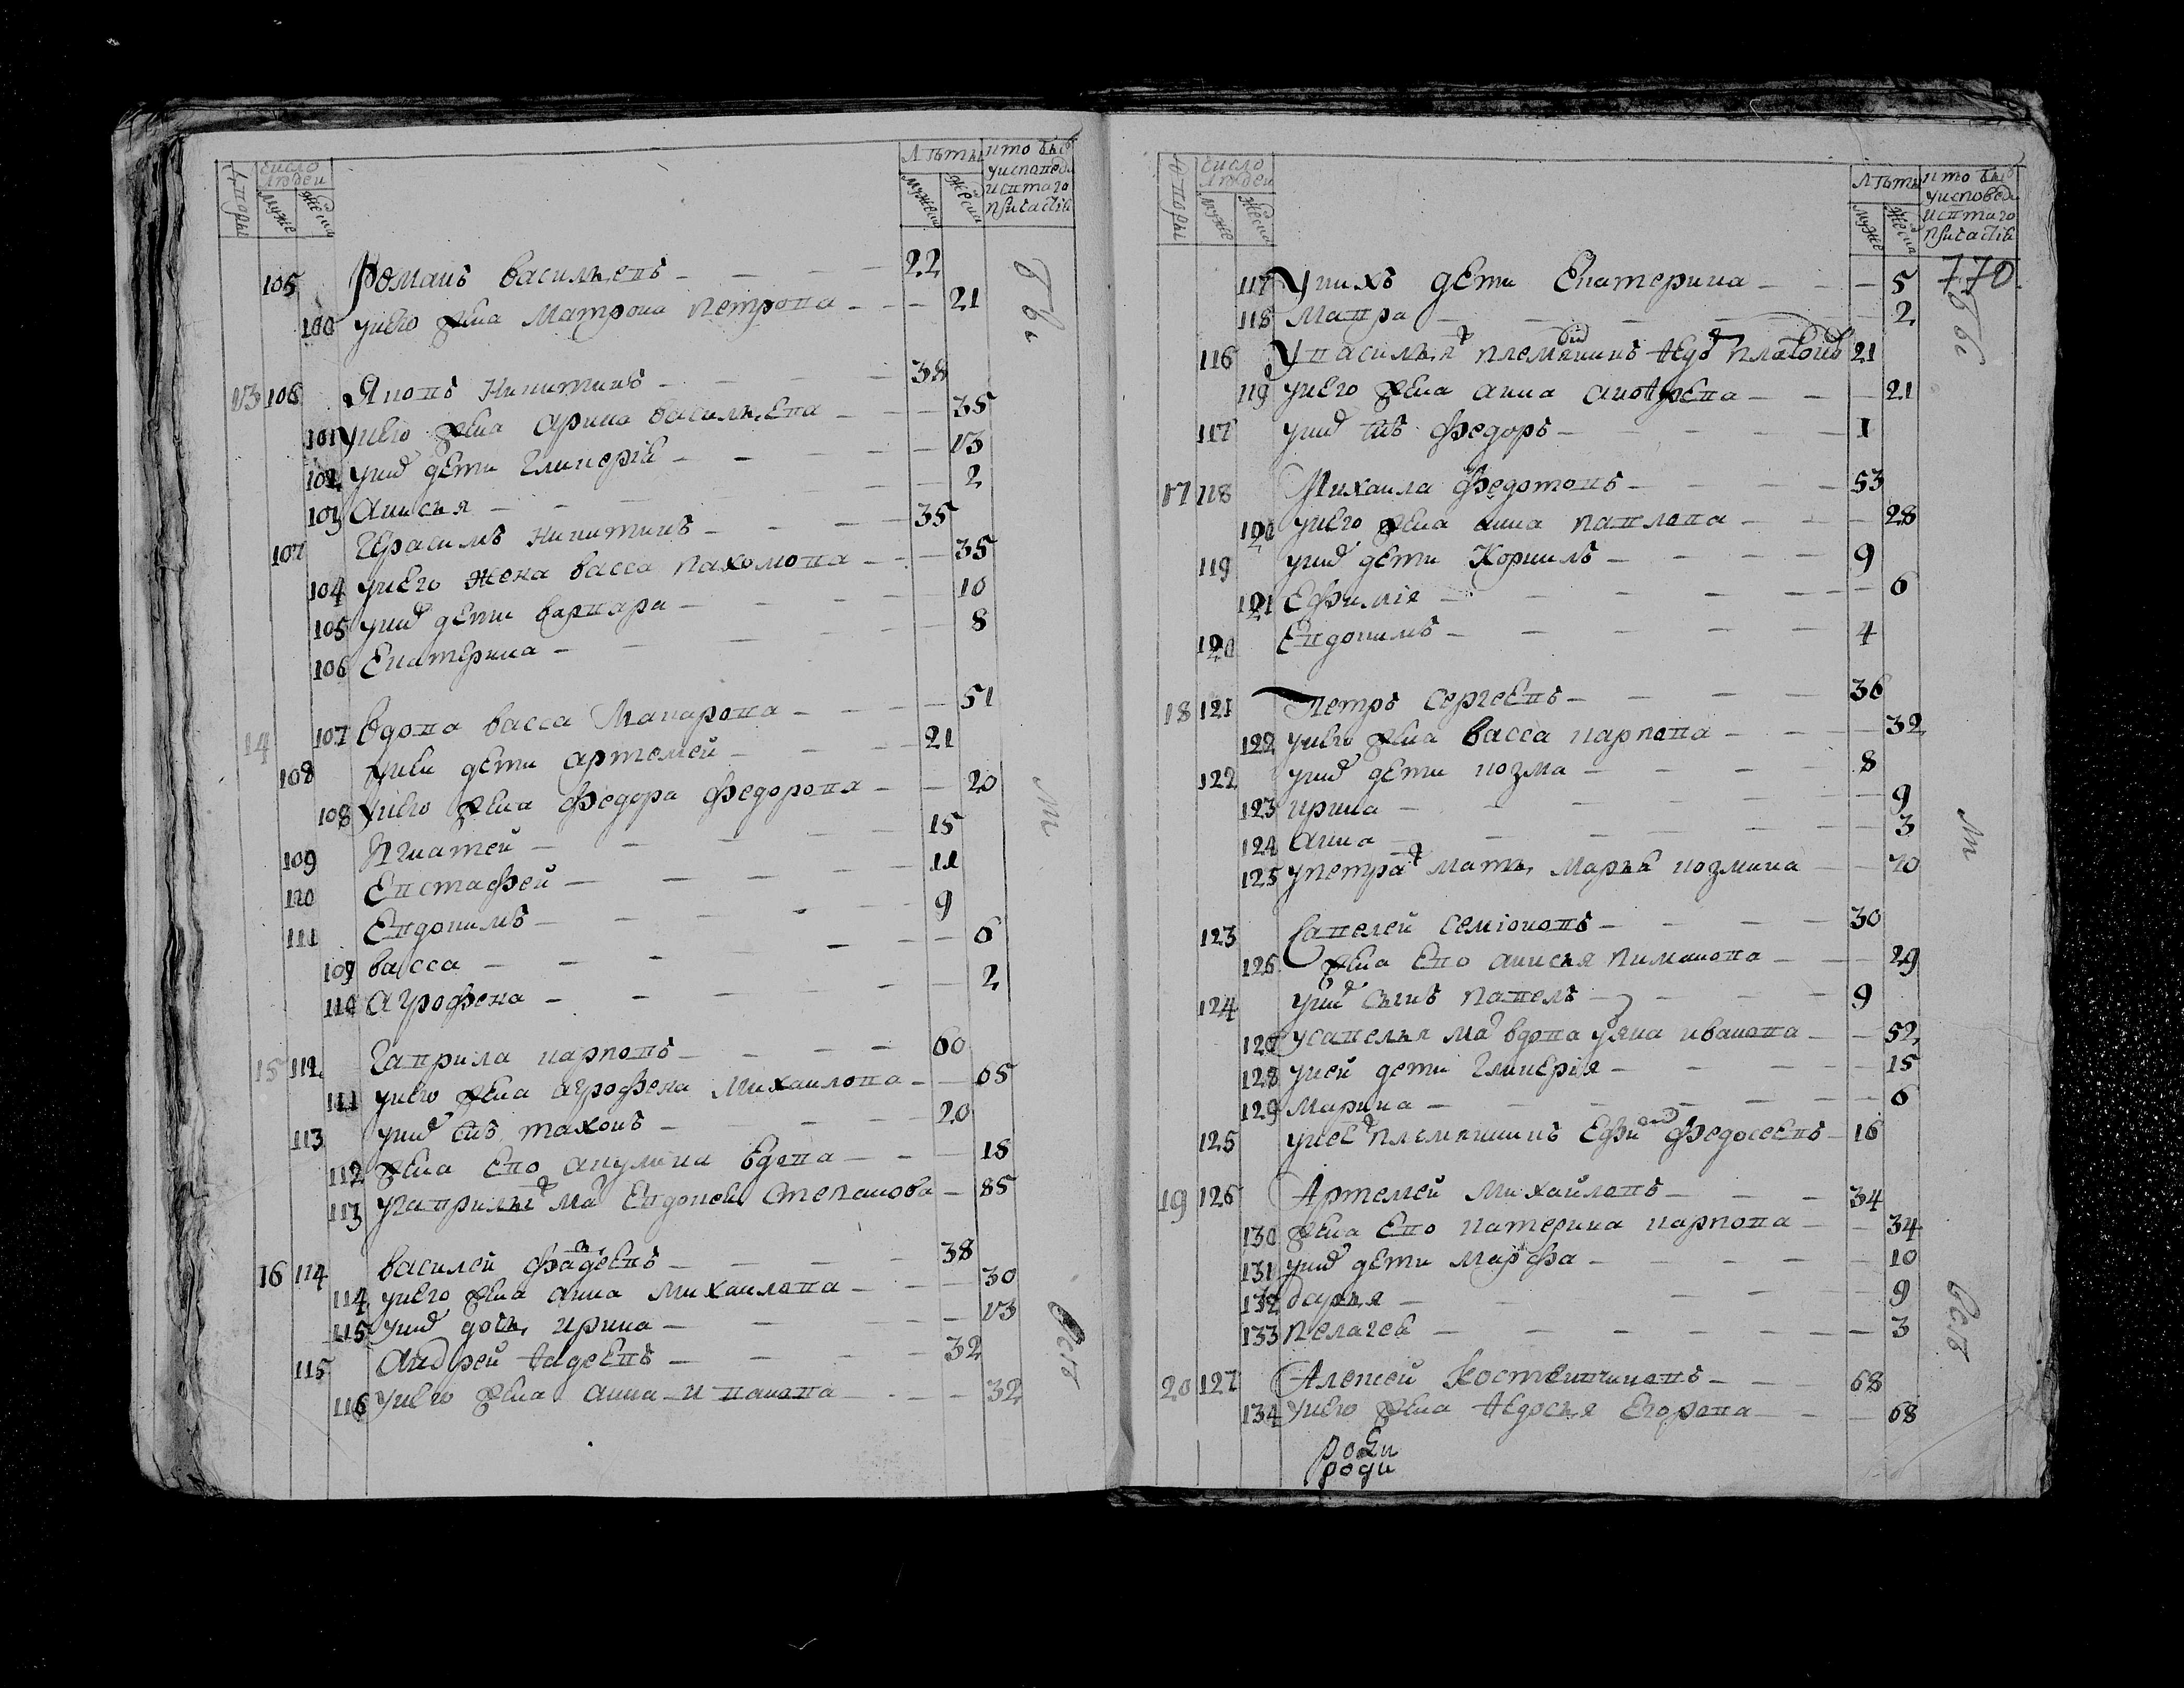 дворы
число людей
муже
женск
лѣты
мужеск
женск
кто былъ у исповеди и святаго причастія
105 Романъ васильевъ 22
100 унего жена Матрона петрова 21
13 106 Яковъ Никитинъ 38
101 унего жена арина васильева 35
102 унихъ дети Гликерія 13
103 Анисья 2
107 Герасимъ никитинъ 35
104 унего жена васса пахомова 35
105 унихъ дети варвара 10
106 Екатерина 8
14 107 вдова васса Макарова 51
108 унеи дети артемей 21
108 унего жена федора федорова 20
109 Игнатей 15
110 Евстафей 11
111 Евдокимъ 9
109 васса 6
110 агрофена 2
15 112 Гаврила карповъ 60
111 унего жена агрофена Михаилова 65
113 унихъ снъ тихонъ 20
112 жена ево акулина 18
113 угаврилы ма Евдокея Степанова 85
16 114 василей фадеевъ 38
114 унего жена анна михаилова 30
115 унихъ дочь ирина 13
115 андрей фадеевъ 32
116 унего жена анна иванова 32
вси
т
вси
дворы
число людей
муже
женск
лѣты
муже
женск
кто былъ у исповеди и святаго причастія
770
117 унихъ дети Екатерина 5
118 мавра 2
116 увасилья племянникъ Ѳедо платоновъ 21
119 унего жена анна 21
117 унихъ снъ федоръ 1
17 118 Михаила федотовъ 53
120 унего жена анна павлова 28
119 унихъ дети Корнилъ 9
121 Ефимія 6
120 Евдокимъ 4
18 121 Петръ сергеевъ 36
122 унего жена васса карпова 32
122 унихъ дети козма 8
123 ирина 9
124 анна 3
125 упетра мать Марья козмина 70
123 савелей семіоновъ 30
126 жена ево анисья пиманова 29
124 унихъ сынъ павелъ 9
127 усавелья ма вдова уяна иванова 52
128 уней дети Гликерія 15
129 Марина 6
125 унее племянникъ Ефи федосеевъ 16
19 126 Артемей михайловъ 34
130 жена ево катерина карпова 34
131 унихъ дети марфа 10
132 дарья 9
133 пелагея 3
20 127 Алексей Костентиновъ 68
134 унего жена Ѳедосья Егорова 68
роди
роди